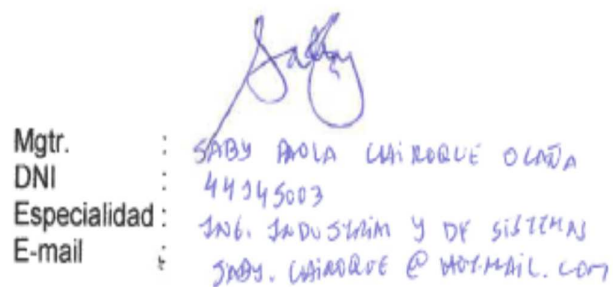 Saby
Mgtr. : SABY PAOLA CHIROQUE OCAÑA
DNI : 44145003
Especialidad : ING. INDUSTRIAL Y DE SISTEMAS
E-mail : SABY.CHIROQUE@HOTMAIL.COM